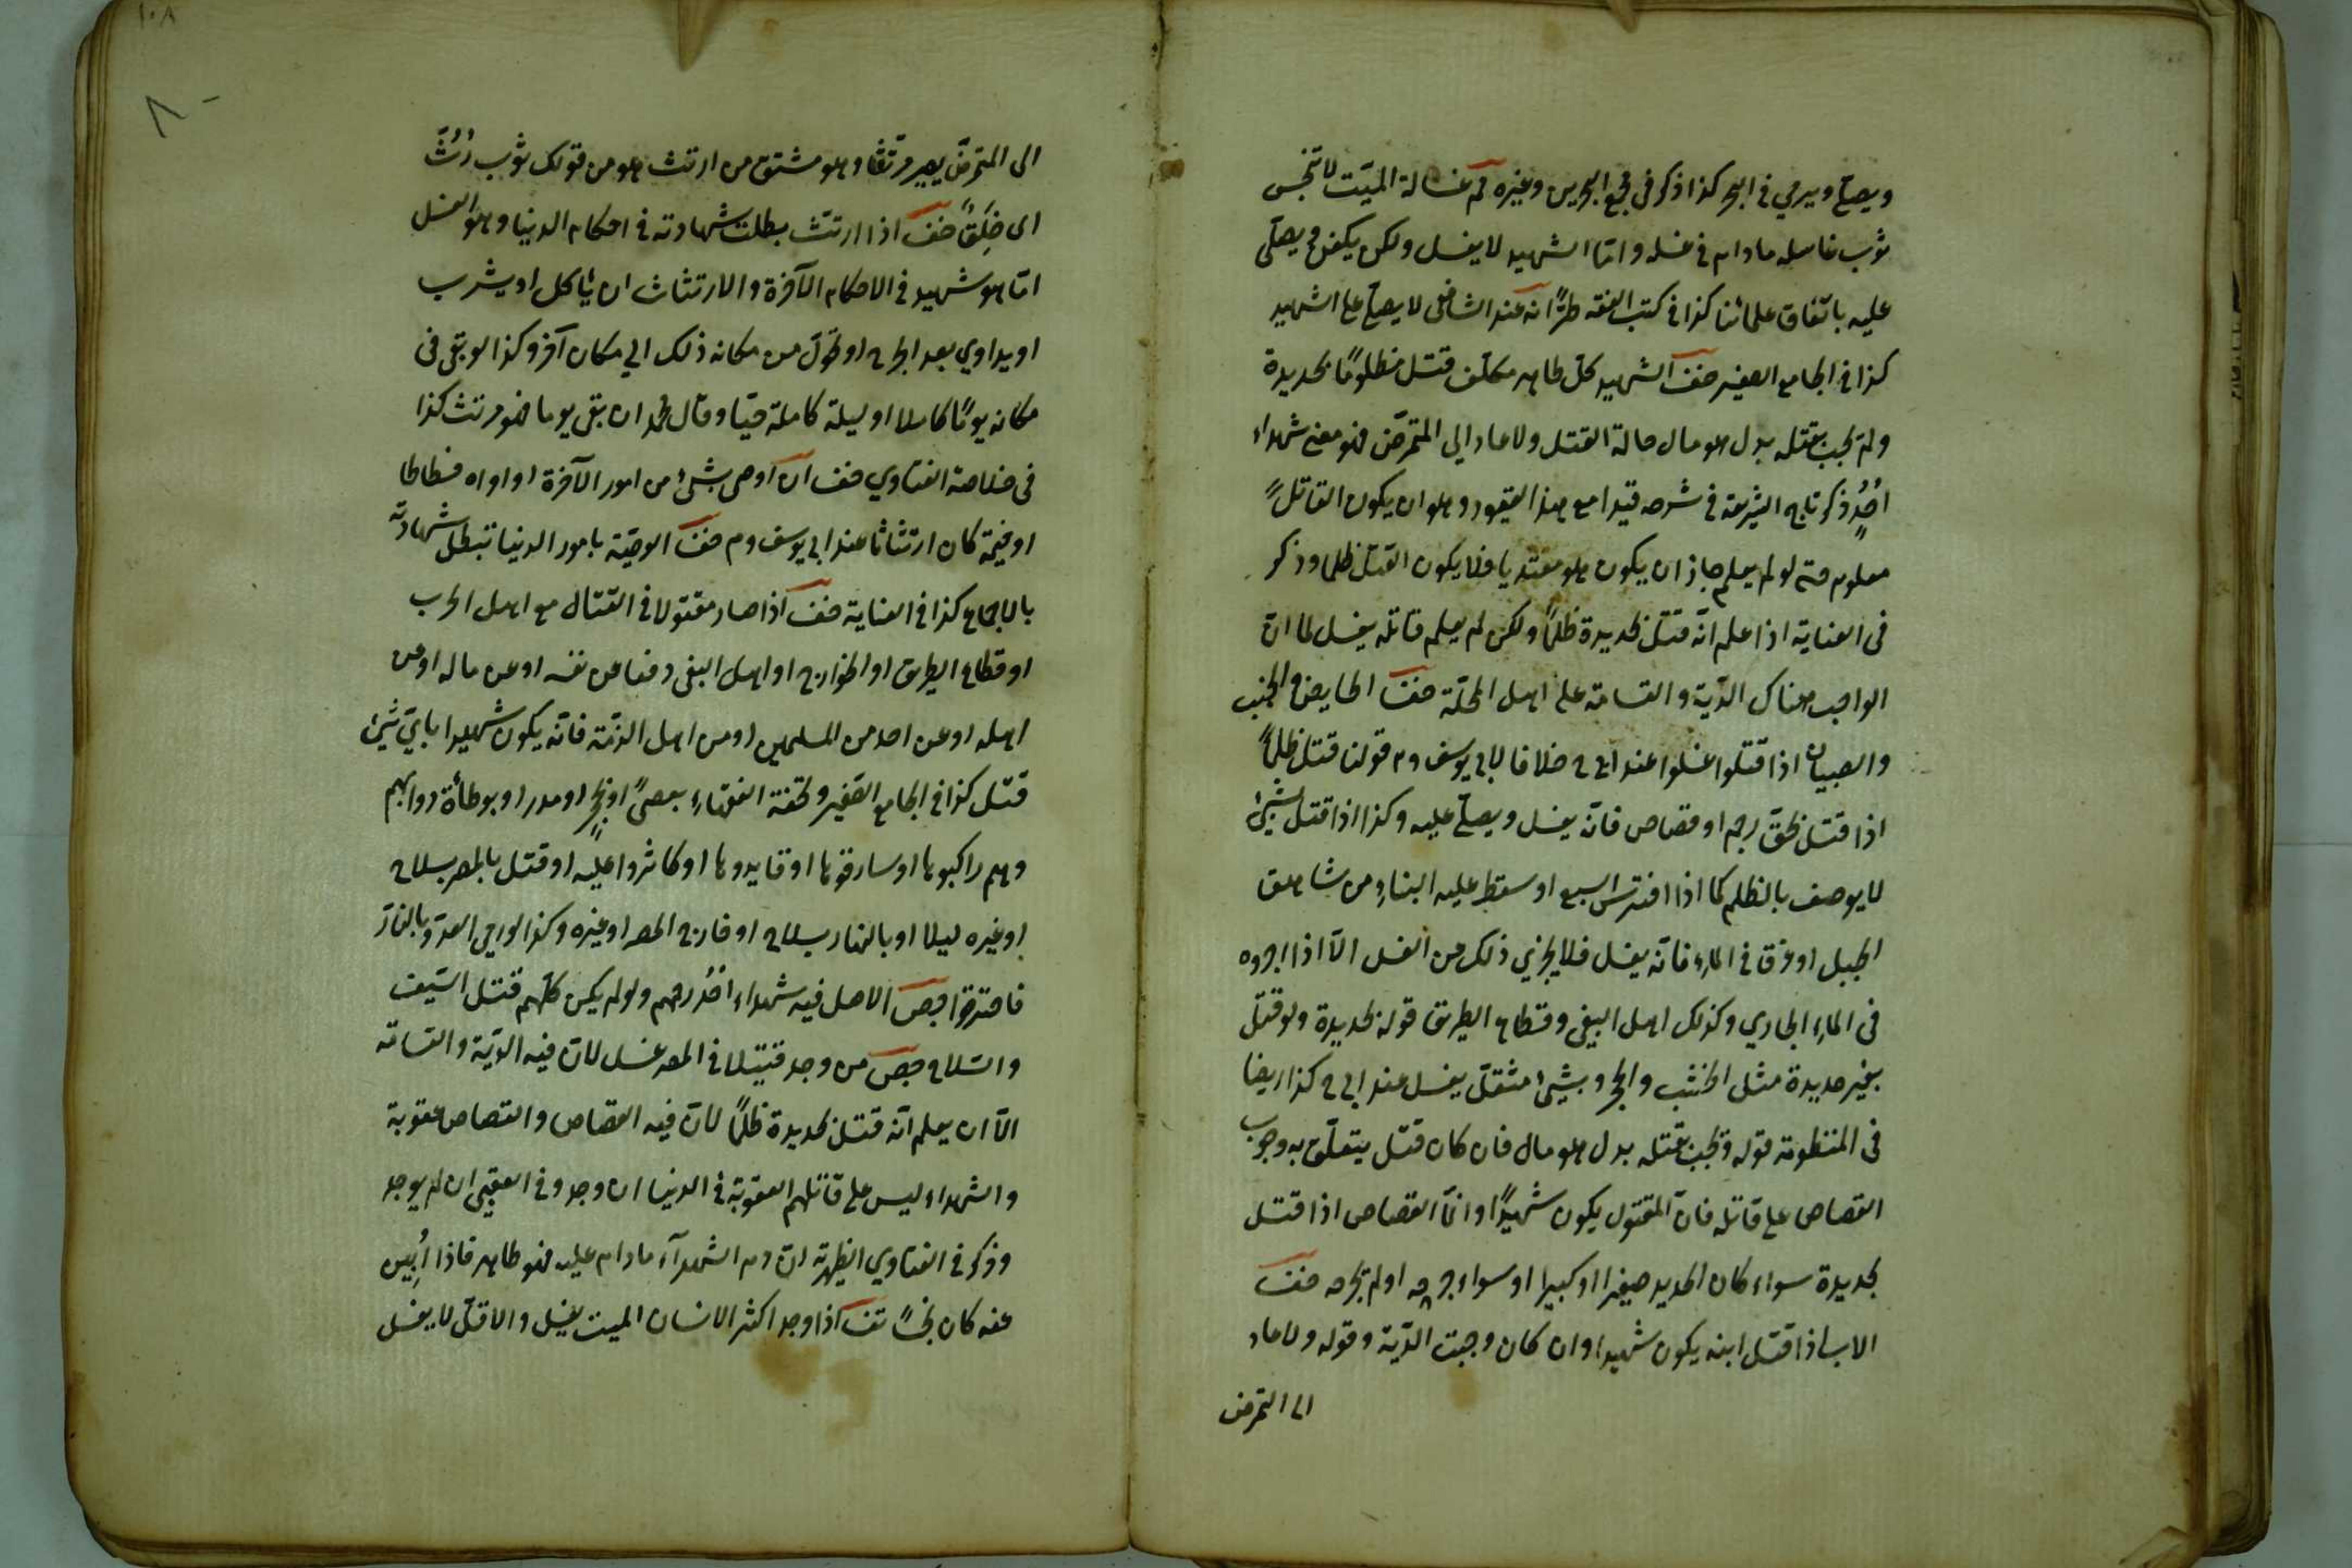 ويصلّى ويرمي في البحر كذا ذكر في مجمع البحرين وغيره ثم غسالة الميّت لا تنجّس
ثوب غاسله مادام في غسله وامّا الشهيد لا يغسل ولكن يكفن ويصلّى
عليه باتّفاق علمائنا كذا في كتب الفقه طرًّا انه عند الشافعى لا يصلّى على الشهيد
كذا في الجامع الصغير حنف الشهيد كلّ طاهر مكلّف قتل مظلومًا بحديدة
ولم يجب بقتله بدل هو مال حالة القتل ولا عاد الي التمرّض فهو معنى شهداء
اُحُدٍ ذكر تاج الشريعة في شرحه قيدا مع هذا القيود وهو ان يكون القاتل
معلوم حتى لو لم يعلم جاز ان يكون هو معتديا فلا يكون القتل ظلما وذكر
في العناية اذا علم انّه قتل بحديدة ظلمًا ولكن لم يعلم قاتله يغسل لما انّ
الواجب هناك الدّية والقسامة على اهل المحلّة حنف الحايض والجنب
والصبيان اذا قتلوا غسلوا عند ابي ح خلافا لابي يوسف وم قولنا قتل ظلمًا
اذا قتل بحقّ رجم او قصاص فانّه يغسل ويصلّى عليه وكذا اذا قتل بشيئ
لا يوصف بالظلم كما اذا افترس السبع او سقط عليه البناء من شاهق
الجبل او غرق في الماء فانّه يغسل فلا يجزي ذلك من الغسل الّا اذا اجروه
في الماء الجاري وكذلك اهل البغى وقطاع الطريق قوله بحديدة ولو قتل
بغير حديدة مثل الخشب والحجر وبشيئ مثقل يغسل عند ابي ح كذا ايضا
في المنظومة قوله وتجب بقتله بدل هو مال فان كان قتل يتعلّق به وجوب
القصاص على قاتله فانّ المقتول يكون شهيدًا وانّما القصاص اذا قتل
بحديدة سواء كان الحديد صغيرا او كبيرا او سواء جرحه او لم تجرحه حنف
الاب اذا قتل ابنه يكون شهيدا وان كان وجبت الدّية وقوله ولا عاد
الى التمرض
١٠٨
٨٠
الى التمرّض يصير مرتثّا وهو مشتق من ارتث هو من قولك ثوب رُثّ
اى خَلِقٌ حنف اذا ارتث بطلت شهادته في احكام الدنيا وهو الغسل
امّا هو شهيد في الاحكام الآخرة والارتثاث ان يأكل او يشرب
او يداوي بعد الجرح او تحوّل من مكانه ذلك الي مكان آخر وكذا لو بقى في
مكانه يومًا كاملا او ليلة كاملة حيّا وقال محمد ان بقى يوما فهو مرتث كذا
في خلاصة الفتاوي حنف ان اوصى بشئ من امور الآخرة او اواه فسطاطا
او خيمة كان ارتثاثا عند ابي يوسف وم حنف الوصيّة بامور الدنيا تبطل شهادته
بالاجماع كذا في العناية حنف اذا صار مقتولا في القتال مع اهل الحرب
او قطاع الطريق او الخوارج او اهل البغى دفعا عن نفسه او عن ماله او عن
اهله او عن احد من المسلمين او من اهل الذمّة فانّه يكون شهيدا بايّ شيئ
قتل كذا في الجامع الصّغير وتحفة الفقهاء بعصىً او بحجر او مدر او بوطأة دوابهم
وهم راكبوها او سارقوها او قايدوها او كاثروا عليه او قتل بالمصر بسلاح
او غيره ليلا او بالنهار بسلاح او خارج المصر او غيره وكذا لو رمى العدو بالنار
فاحترقوا حبص الاصل فيه شهداء اُحُد رحمهم ولو لم يكن كلّهم قتل السّيف
والسّلاح حبص من وجد قتيلا في المصر غسل لانّ فيه الديّة والقسامة
الّا ان يعلم انّه قتل بحديدة ظلمًا لانّ فيه القصاص والقصاص عقوبة
والشهداء ليس على قاتلهم العقوبة في الدنيا ان وجد وفي العقبى ان لم يوجد
وذكر في الفتاوي الظهيرية انّ دم الشهدآء مادام عليه فهو طاهر فاذا اُبِين
عنه كان نجسًا تف اذا وجد اكثر الانسان الميت يغسل والاقلّ لا يغسل